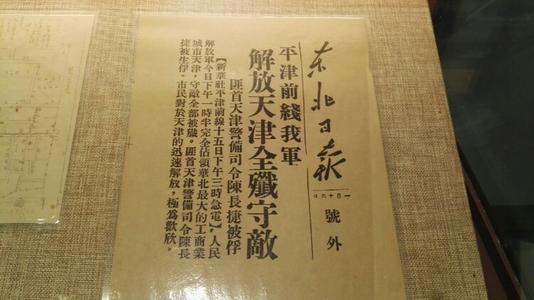 东北日报
一月十六日
號外
平津前綫我軍
解放天津全殲守敵
匪首天津警備司令陳長捷被俘
【新華社平津前線十五日下午三時急電】人民
解放軍今日下午一時半完全佔領華北最大的工商業
城市天津，守敵全部被殲。匪首天津警備司令陳長
捷被生俘。市民對於天津的迅速解放，極爲歡欣。